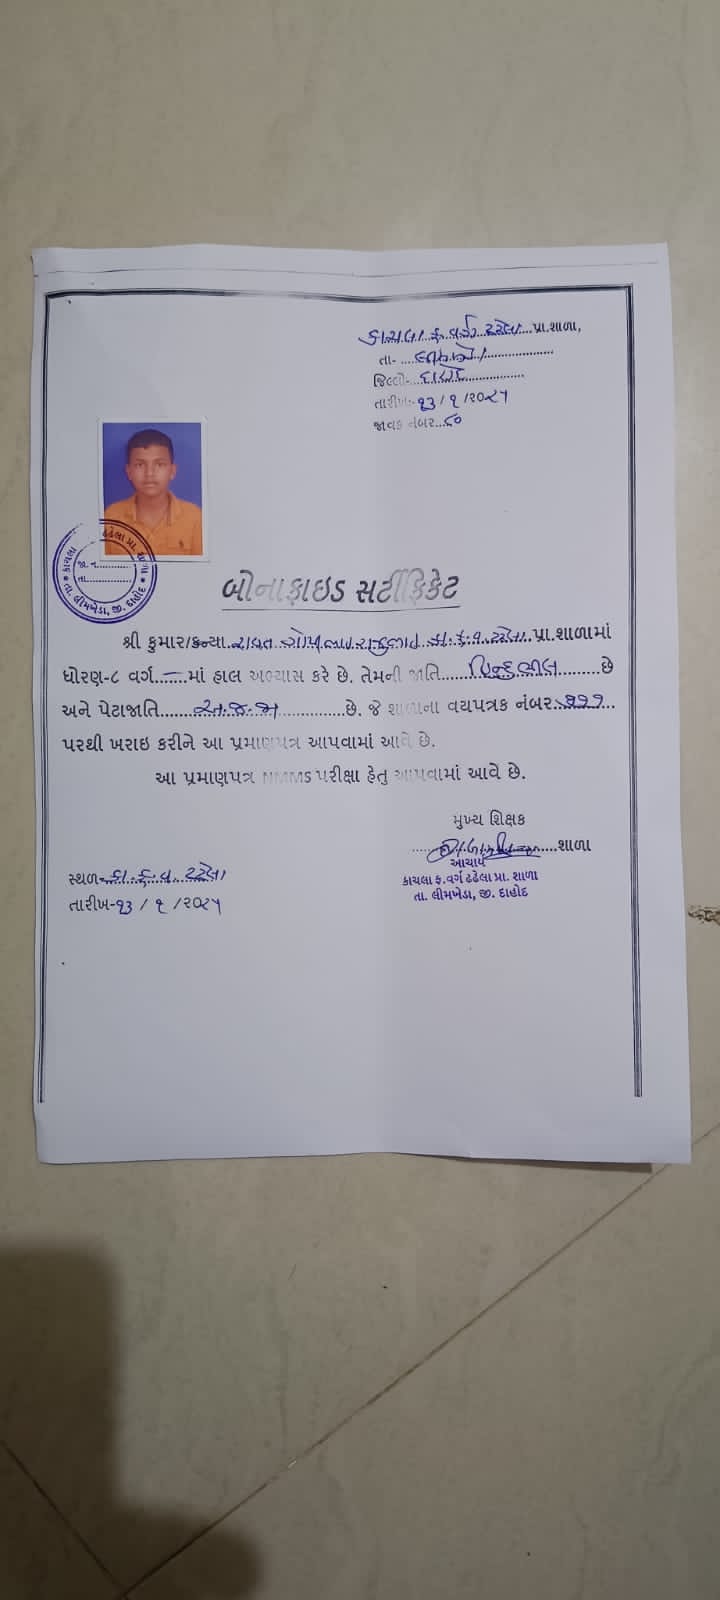 કાચલા ફ વર્ગ ઢઢેલા પ્રા.શાળા,
તા-
જિલ્લો- દાહોદ
તારીખ:-૧૩/૧/૨૦૨૫
જાવક નંબર...૬૦
કાચલા ઢઢેલા પ્રા. શાળા
જા. ન.
તા.
તા. લીમખેડા, જી. દાહોદ
બોનાફાઇડ સર્ટીફિકેટ
શ્રી કુમાર/કન્યા રાવત ગોપાલભાઇ કા.ફ.વ. ઢઢેલા પ્રા.શાળામાં
ધોરણ-૮ વર્ગ.....–.માં હાલ અભ્યાસ કરે છે. તેમની જાતિ હિન્દુભીલ છે
અને પેટાજાતિ અ.જ.જા છે. જે શાળાના વયપત્રક નંબર ૭૭૭
પરથી ખરાઇ કરીને આ પ્રમાણપત્ર આપવામાં આવે છે.
આ પ્રમાણપત્ર NMMS પરીક્ષા હેતુ આપવામાં આવે છે.
મુખ્ય શિક્ષક
શાળા
આચાર્ય
કાચલા ફ.વર્ગ ઢઢેલા પ્રા. શાળા
તા. લીમખેડા, જી. દાહોદ
સ્થળ-કા.ફ.વ. ઢઢેલા
તારીખ-૧૩ / ૧ /૨૦૨૫